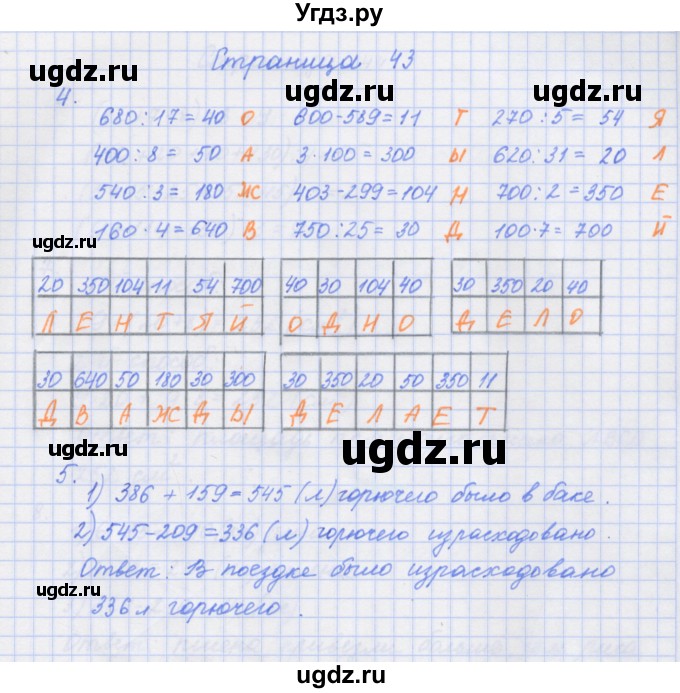 Угдз.ру
Страница 43
ugdz.ru ugdz.ru
4.
680 : 17 = 40 О 600 - 589 = 11 Т 270 : 5 = 54 Я
ugdz.ru
400 : 8 = 50 А 3 · 100 = 300 Ы 620 : 31 = 20 Л
540 : 3 = 180 Ж 403 - 299 = 104 Н 700 : 2 = 350 Е
ugdz.ru
160 · 4 = 640 В 750 : 25 = 30 Д 100 · 7 = 700 Й
20 350 104 11 54 700 40 30 104 40 30 350 20 40
Л Е Н Т Я Й О Д Н О Д Е Л О
ugdz.ru
30 640 50 180 30 300 30 350 20 50 350 11
Д В А Ж Д Ы Д Е Л А Е Т
ugdz.ru ugdz.ru
5.
1) 386 + 159 = 545 (л) горючего было в баке.
2) 545 - 209 = 336 (л) горючего израсходовано.
Ответ: В поездке было израсходовано
ugdz.ru
336 л горючего.
ugdz.ru
ugdz.ru